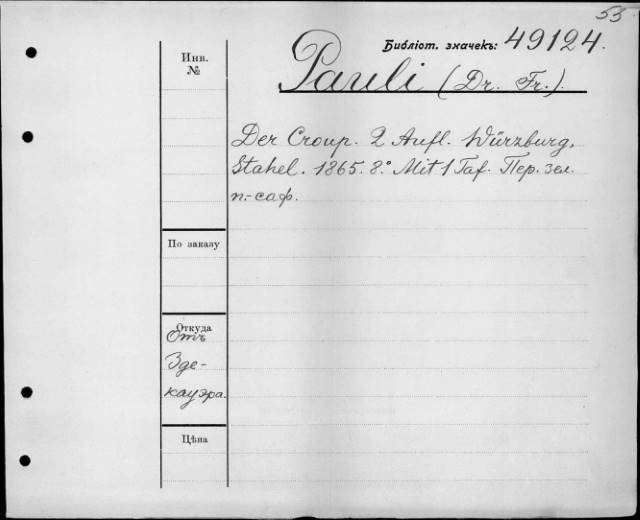 55
Библіот. значекъ: 49124.
Инв.
№
Pauli (Dr. Fr.).
Der Croup. 2 Aufl. Würzburg,
Stahel. 1865. 8.° Mit 1 Taf. Пер. зел.
п.-саф.
По заказу
Откуда
Отъ
Эде-
кауэра.
Цѣна